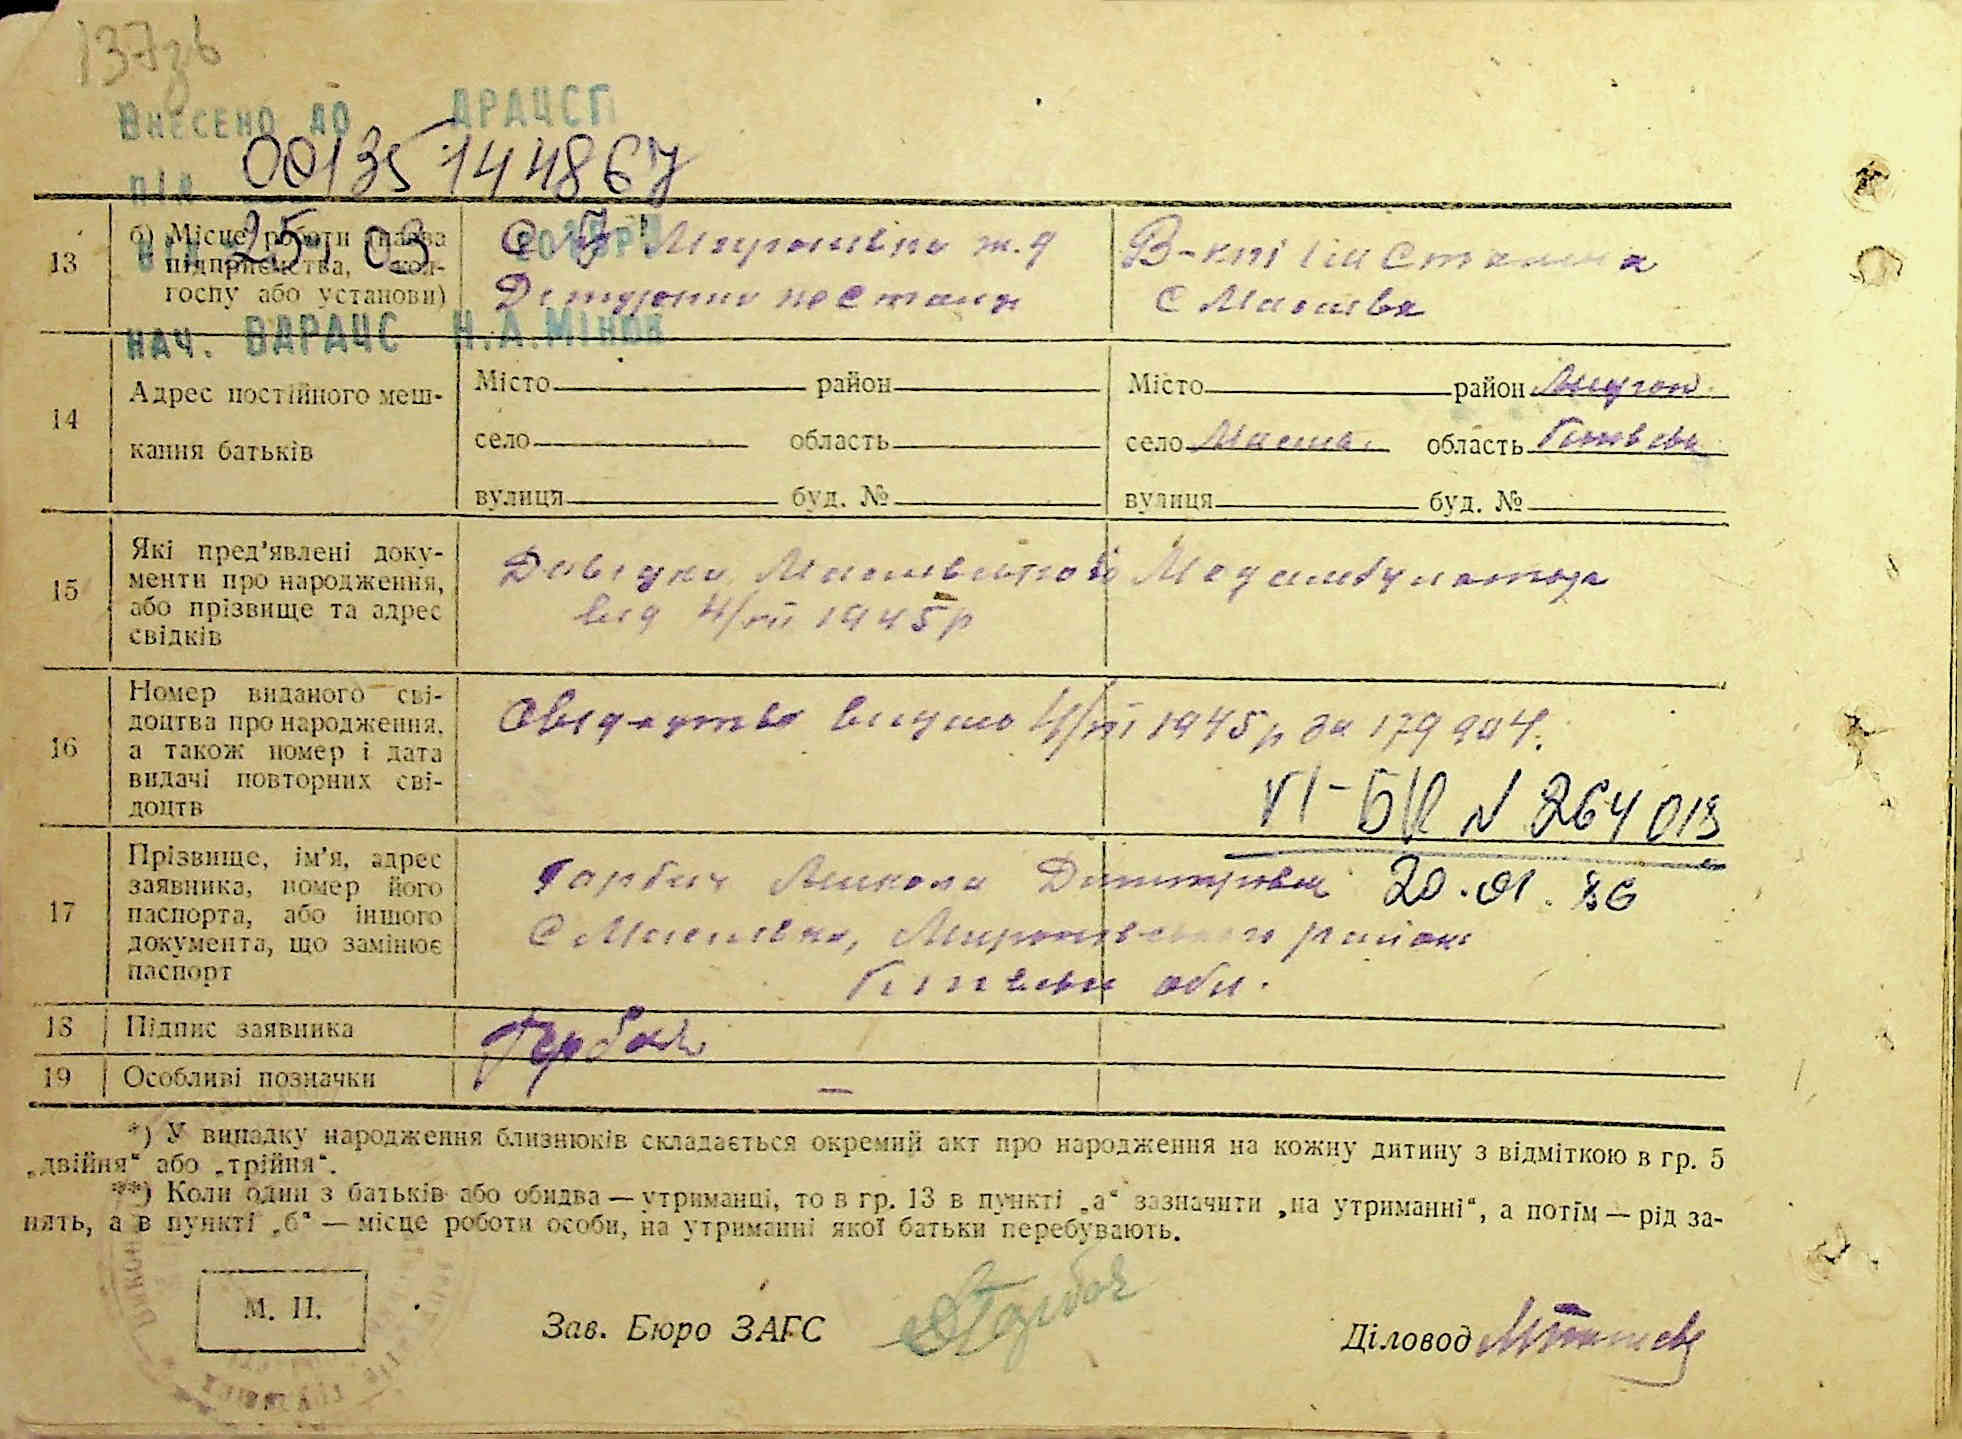 137зв
Внесено до ДРАЦСГ
00135144867
під
25 03
нач. ВДРАЦС Н.А.Мінов
13
б) Місце роботи (назва
підприємства, кол-
госпу або установи)
ж.д
по Станц
В-кпі ім Сталина
С Масівка
14
Адрес постійного меш-
кання батьків
Місто район
село область
вулиця буд. №
Місто район Мирон.
село Масів. область Київськ
вулиця буд. №
15
Які пред'явлені доку-
менти про народження,
або прізвище та адрес
свідків
Довідка Масівської
від 4/VII 1945р
16
Номер виданого сві-
доцтва про народження,
а також номер і дата
видачі повторних сві-
доцтв
Свідоцтво видано 4/VII 1945р за 179904.
VI-БК N 264018
20.01.86
17
Прізвище, ім'я, адрес
заявника, номер його
паспорта, або іншого
документа, що замінює
паспорт
Микола
С Масівка, Миронівського району
Київськ обл.
18
Підпис заявника
19
Особливі позначки
—
*) У випадку народження близнюків складається окремий акт про народження на кожну дитину з відміткою в гр. 5
„двійня“ або „трійня“.
**) Коли один з батьків або обидва — утриманці, то в гр. 13 в пункті „а“ зазначити „на утриманні“, а потім — рід за-
нять, а в пункті „б“ — місце роботи особи, на утриманні якої батьки перебувають.
М. П.
Зав. Бюро ЗАГС
Діловод